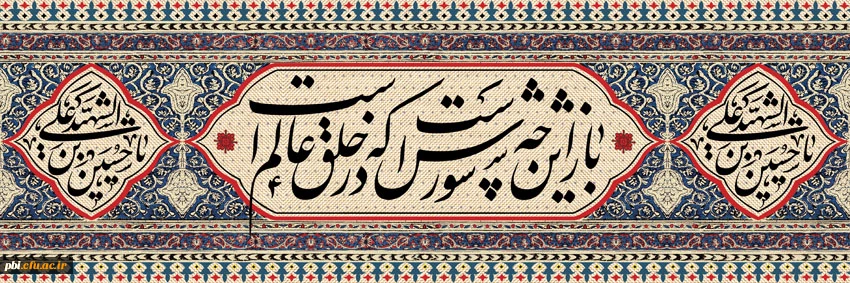 یا حسین بن علی الشهید
باز این چه شورش است که در خلق عالم است
یا حسین بن علی الشهید
pbi.cfu.ac.ir